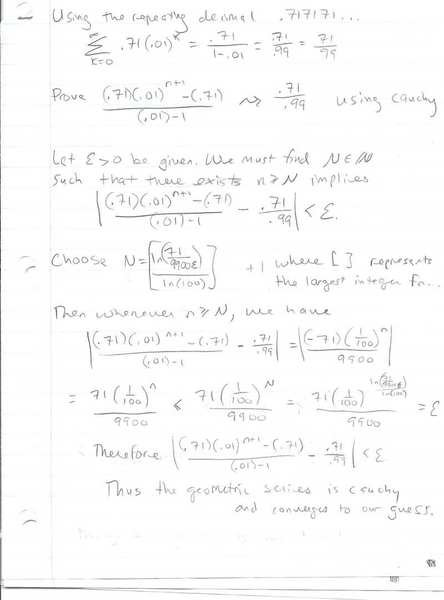 Using the repeating decimal .717171...
∞∑k=0 .71(.01)^k = .71/1-.01 = .71/.99 = 71/99
Prove (.71)(.01)^n+1 -(.71)/(.01)-1 ~> .71/.99 using cauchy
Let ε>0 be given. We must find N∈ℕ
such that there exists n≥N implies
|(.71)(.01)^n+1 -(.71)/(.01)-1 - .71/.99| < ε.
Choose N=[ln(71/9900ε)/ln(100)] +1 where [ ] represents
the largest integer fn...
Then whenever n≥N, we have
|(.71)(.01)^n+1 -(.71)/(.01)-1 - .71/.99| = |(-71)(1/100)^n/9900|
= 71(1/100)^n/9900 ≤ 71(1/100)^N/9900 = 71(1/100)^ln(71/9900ε)/ln(100)/9900 = ε
Therefore |(.71)(.01)^n+1 -(.71)/(.01)-1 - .71/.99| < ε
Thus the geometric series is cauchy
and converges to our guess.